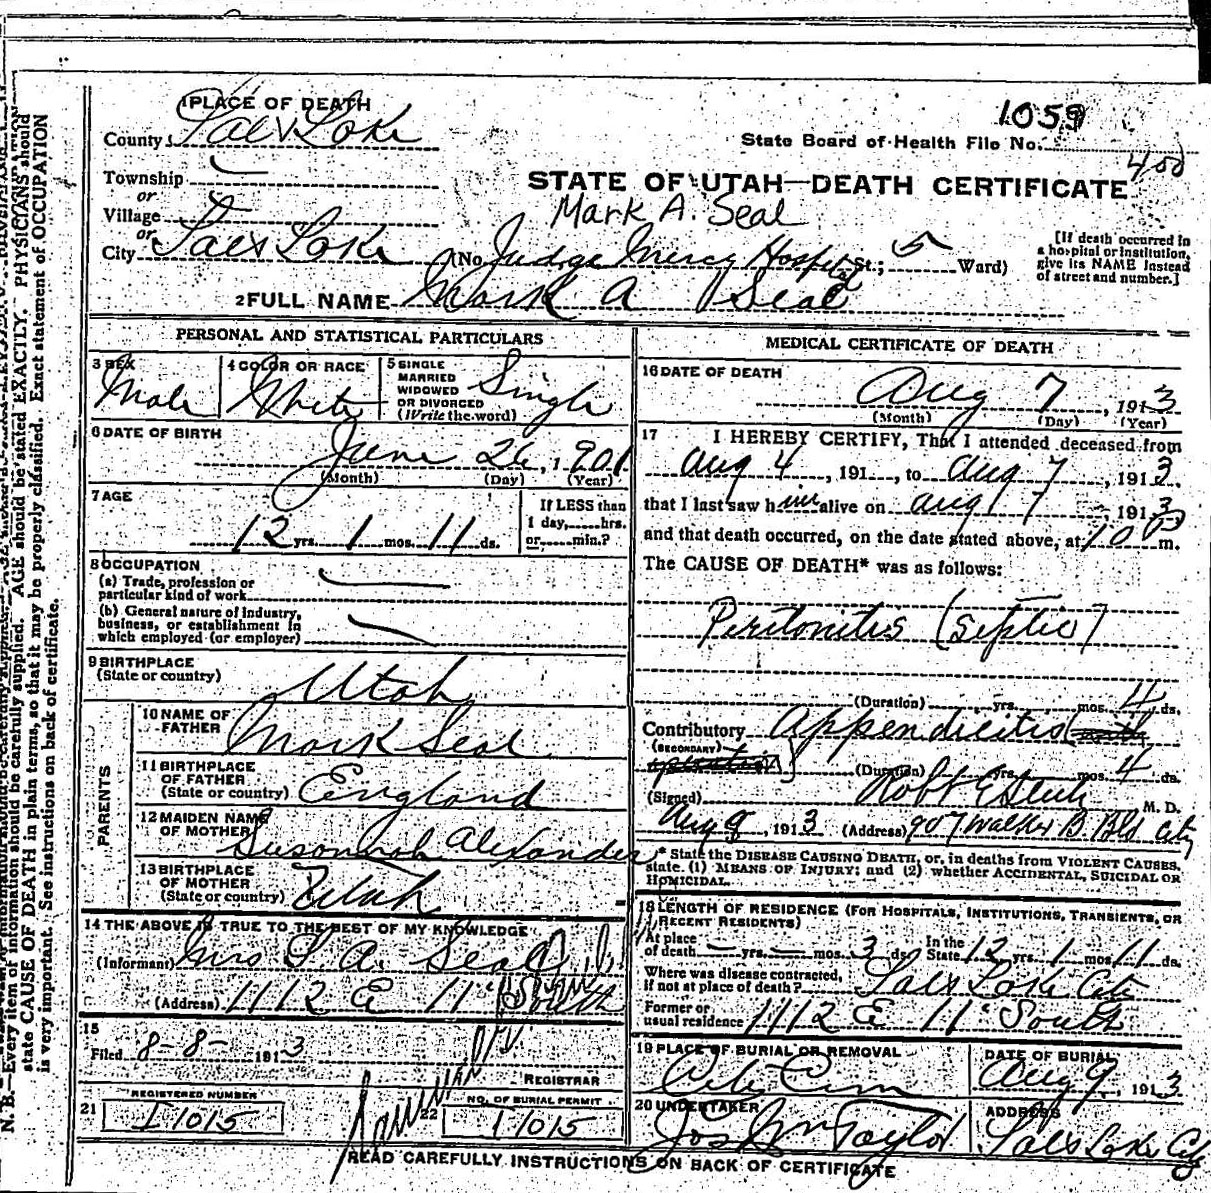 1059
State Board of Health File No.
400
1 PLACE OF DEATH
County Salt Lake
Township
or
Village
or
City Salt Lake
STATE OF UTAH—DEATH CERTIFICATE
Mark A. Seal
(No. Judge Mercy Hospital St.; 5 Ward)
[If death occurred in
a hospital or institution,
give its NAME instead
of street and number.]
2 FULL NAME Mark A Seal
PERSONAL AND STATISTICAL PARTICULARS
3 SEX
Male
4 COLOR OR RACE
White
5 SINGLE
MARRIED
WIDOWED
OR DIVORCED
(Write the word)
Single
6 DATE OF BIRTH
June 26, 1901
(Month) (Day) (Year)
7 AGE
12 yrs. 1 mos. 11 ds.
If LESS than
1 day, hrs.
or min.?
8 OCCUPATION
(a) Trade, profession or
particular kind of work
(b) General nature of industry,
business, or establishment in
which employed (or employer)
9 BIRTHPLACE
(State or country)
Utah
PARENTS
10 NAME OF
FATHER
Mark Seal
11 BIRTHPLACE
OF FATHER
(State or country)
England
12 MAIDEN NAME
OF MOTHER
Susannah Alexander
13 BIRTHPLACE
OF MOTHER
(State or country)
Utah
14 THE ABOVE IS TRUE TO THE BEST OF MY KNOWLEDGE
(Informant) Mrs S. A. Seal
(Address) 1112 E 11" South
15
Filed 8-8- 1913
REGISTRAR
21
REGISTERED NUMBER
I 1015
22
NO. OF BURIAL PERMIT
I 1015
MEDICAL CERTIFICATE OF DEATH
16 DATE OF DEATH
Aug 7, 1913
(Month) (Day) (Year)
17 I HEREBY CERTIFY, That I attended deceased from
Aug 4, 191 , to Aug 7, 1913.
that I last saw him alive on Aug 7, 1913
and that death occurred, on the date stated above, at 10 P m.
The CAUSE OF DEATH* was as follows:
Peritonitis (septic)
(Duration) yrs. mos. 4 ds.
Contributory Appendicitis
(SECONDARY)
(Duration) yrs. mos. 4 ds.
(Signed) Robt E M. D.
Aug 8, 1913 (Address) 907 Walker B. Bld City
* State the DISEASE CAUSING DEATH, or, in deaths from VIOLENT CAUSES,
state (1) MEANS OF INJURY; and (2) whether ACCIDENTAL, SUICIDAL OR
HOMICIDAL.
18 LENGTH OF RESIDENCE (FOR HOSPITALS, INSTITUTIONS, TRANSIENTS, OR
RECENT RESIDENTS)
At place
of death yrs. mos. 3 ds. In the State 12 yrs. 1 mos. 11 ds.
Where was disease contracted,
If not at place of death? Salt Lake City
Former or
usual residence 1112 E 11" South
19 PLACE OF BURIAL OR REMOVAL
City Cem
DATE OF BURIAL
Aug 9, 1913
20 UNDERTAKER
Jos Wm Taylor
ADDRESS
Salt Lake City
READ CAREFULLY INSTRUCTIONS ON BACK OF CERTIFICATE
N. B.—Every item of information should be carefully supplied. AGE should be stated EXACTLY. PHYSICIANS should
state CAUSE OF DEATH in plain terms, so that it may be properly classified. Exact statement of OCCUPATION
is very important. See instructions on back of certificate.